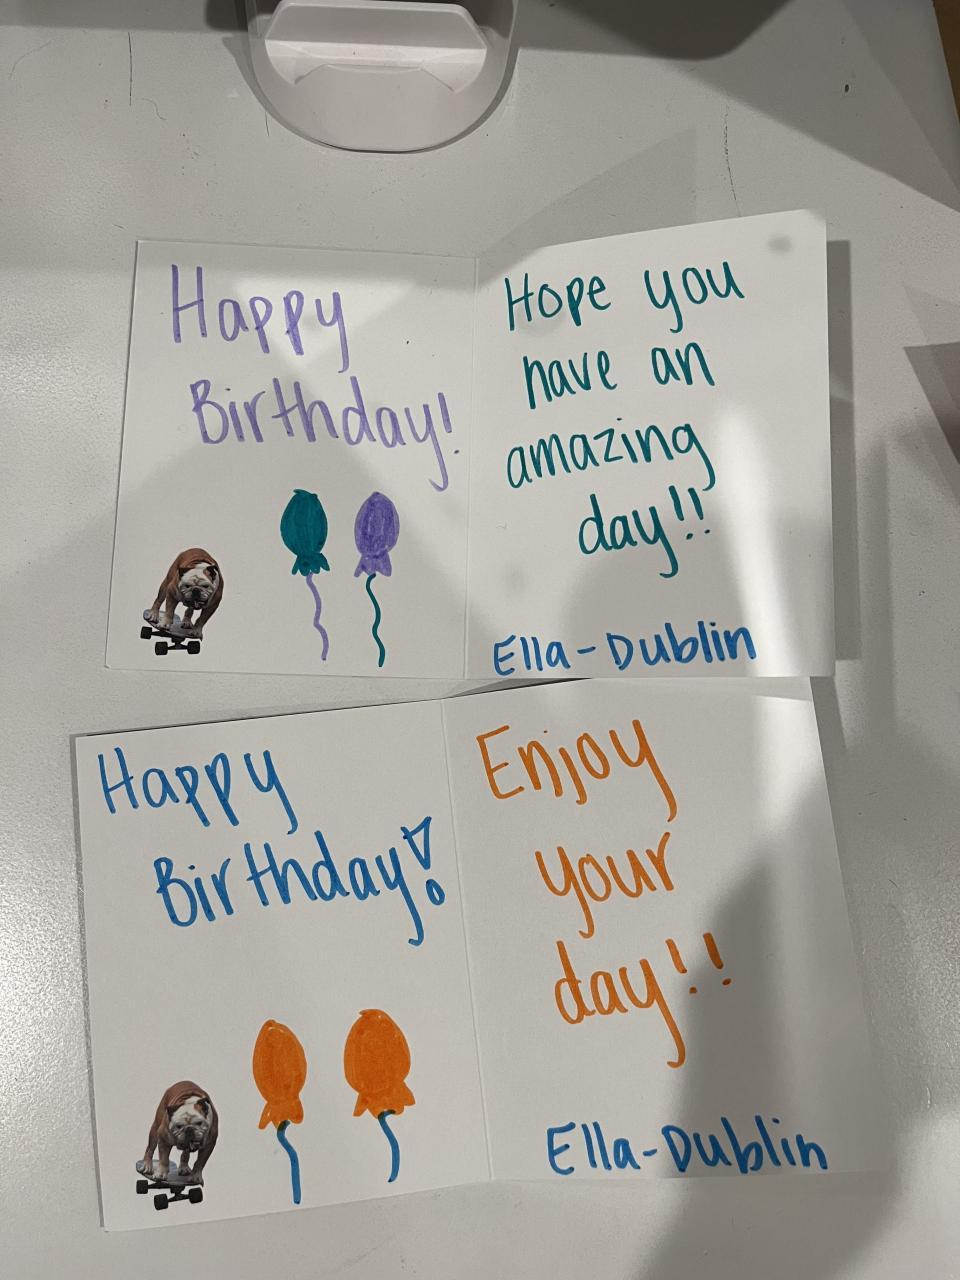 Happy
Birthday!
Hope you
have an
amazing
day!!
Ella-Dublin
Happy
Birthday!
Enjoy
your
day!!
Ella-Dublin